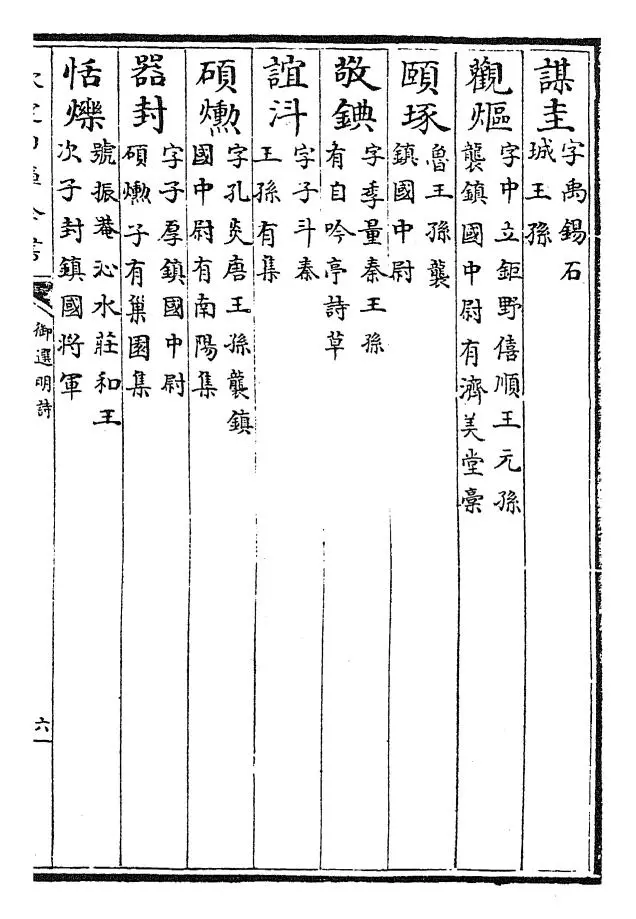 謀㙓 字禹錫石
城王孫
觀熰 字中立鉅野僖順王元孫
襲鎮國中尉有濟美堂稾
頤琢 魯王孫襲
鎮國中尉
敬錪 字季量秦王孫
有自吟亭詩草
誼㳆 字子斗秦
王孫有集
碩爋 字孔炎唐王孫襲鎮
國中尉有南陽集
器封 字子厚鎮國中尉
碩爋子有巢園集
恬爍 號振菴沁水莊和王
次子封鎮國將軍
御選明詩
六一